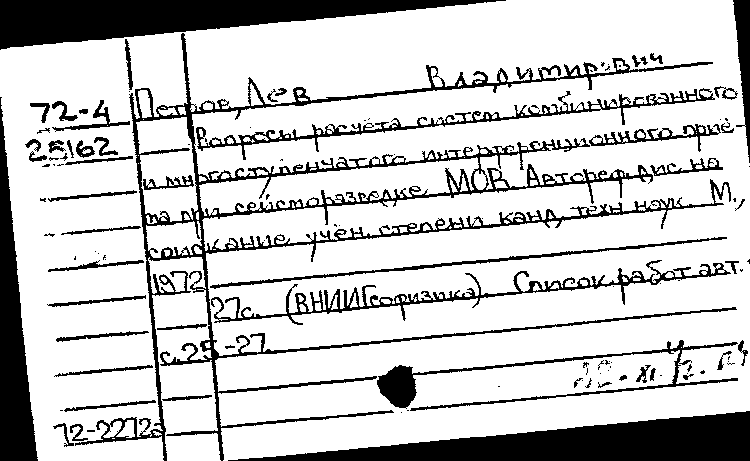 72-4 Петров, Лев Владимирович
25162 Вопросы расчёта систем комбинированного
и многоступенчатого интерференционного приё-
ма при сейсморазведке МОВ. Автореф. дис. на
соискание учен. степени канд. техн. наук. М.,
1972
27с. (ВНИИГеофизика). Список работ авт.
с. 25-27.
72-2272а